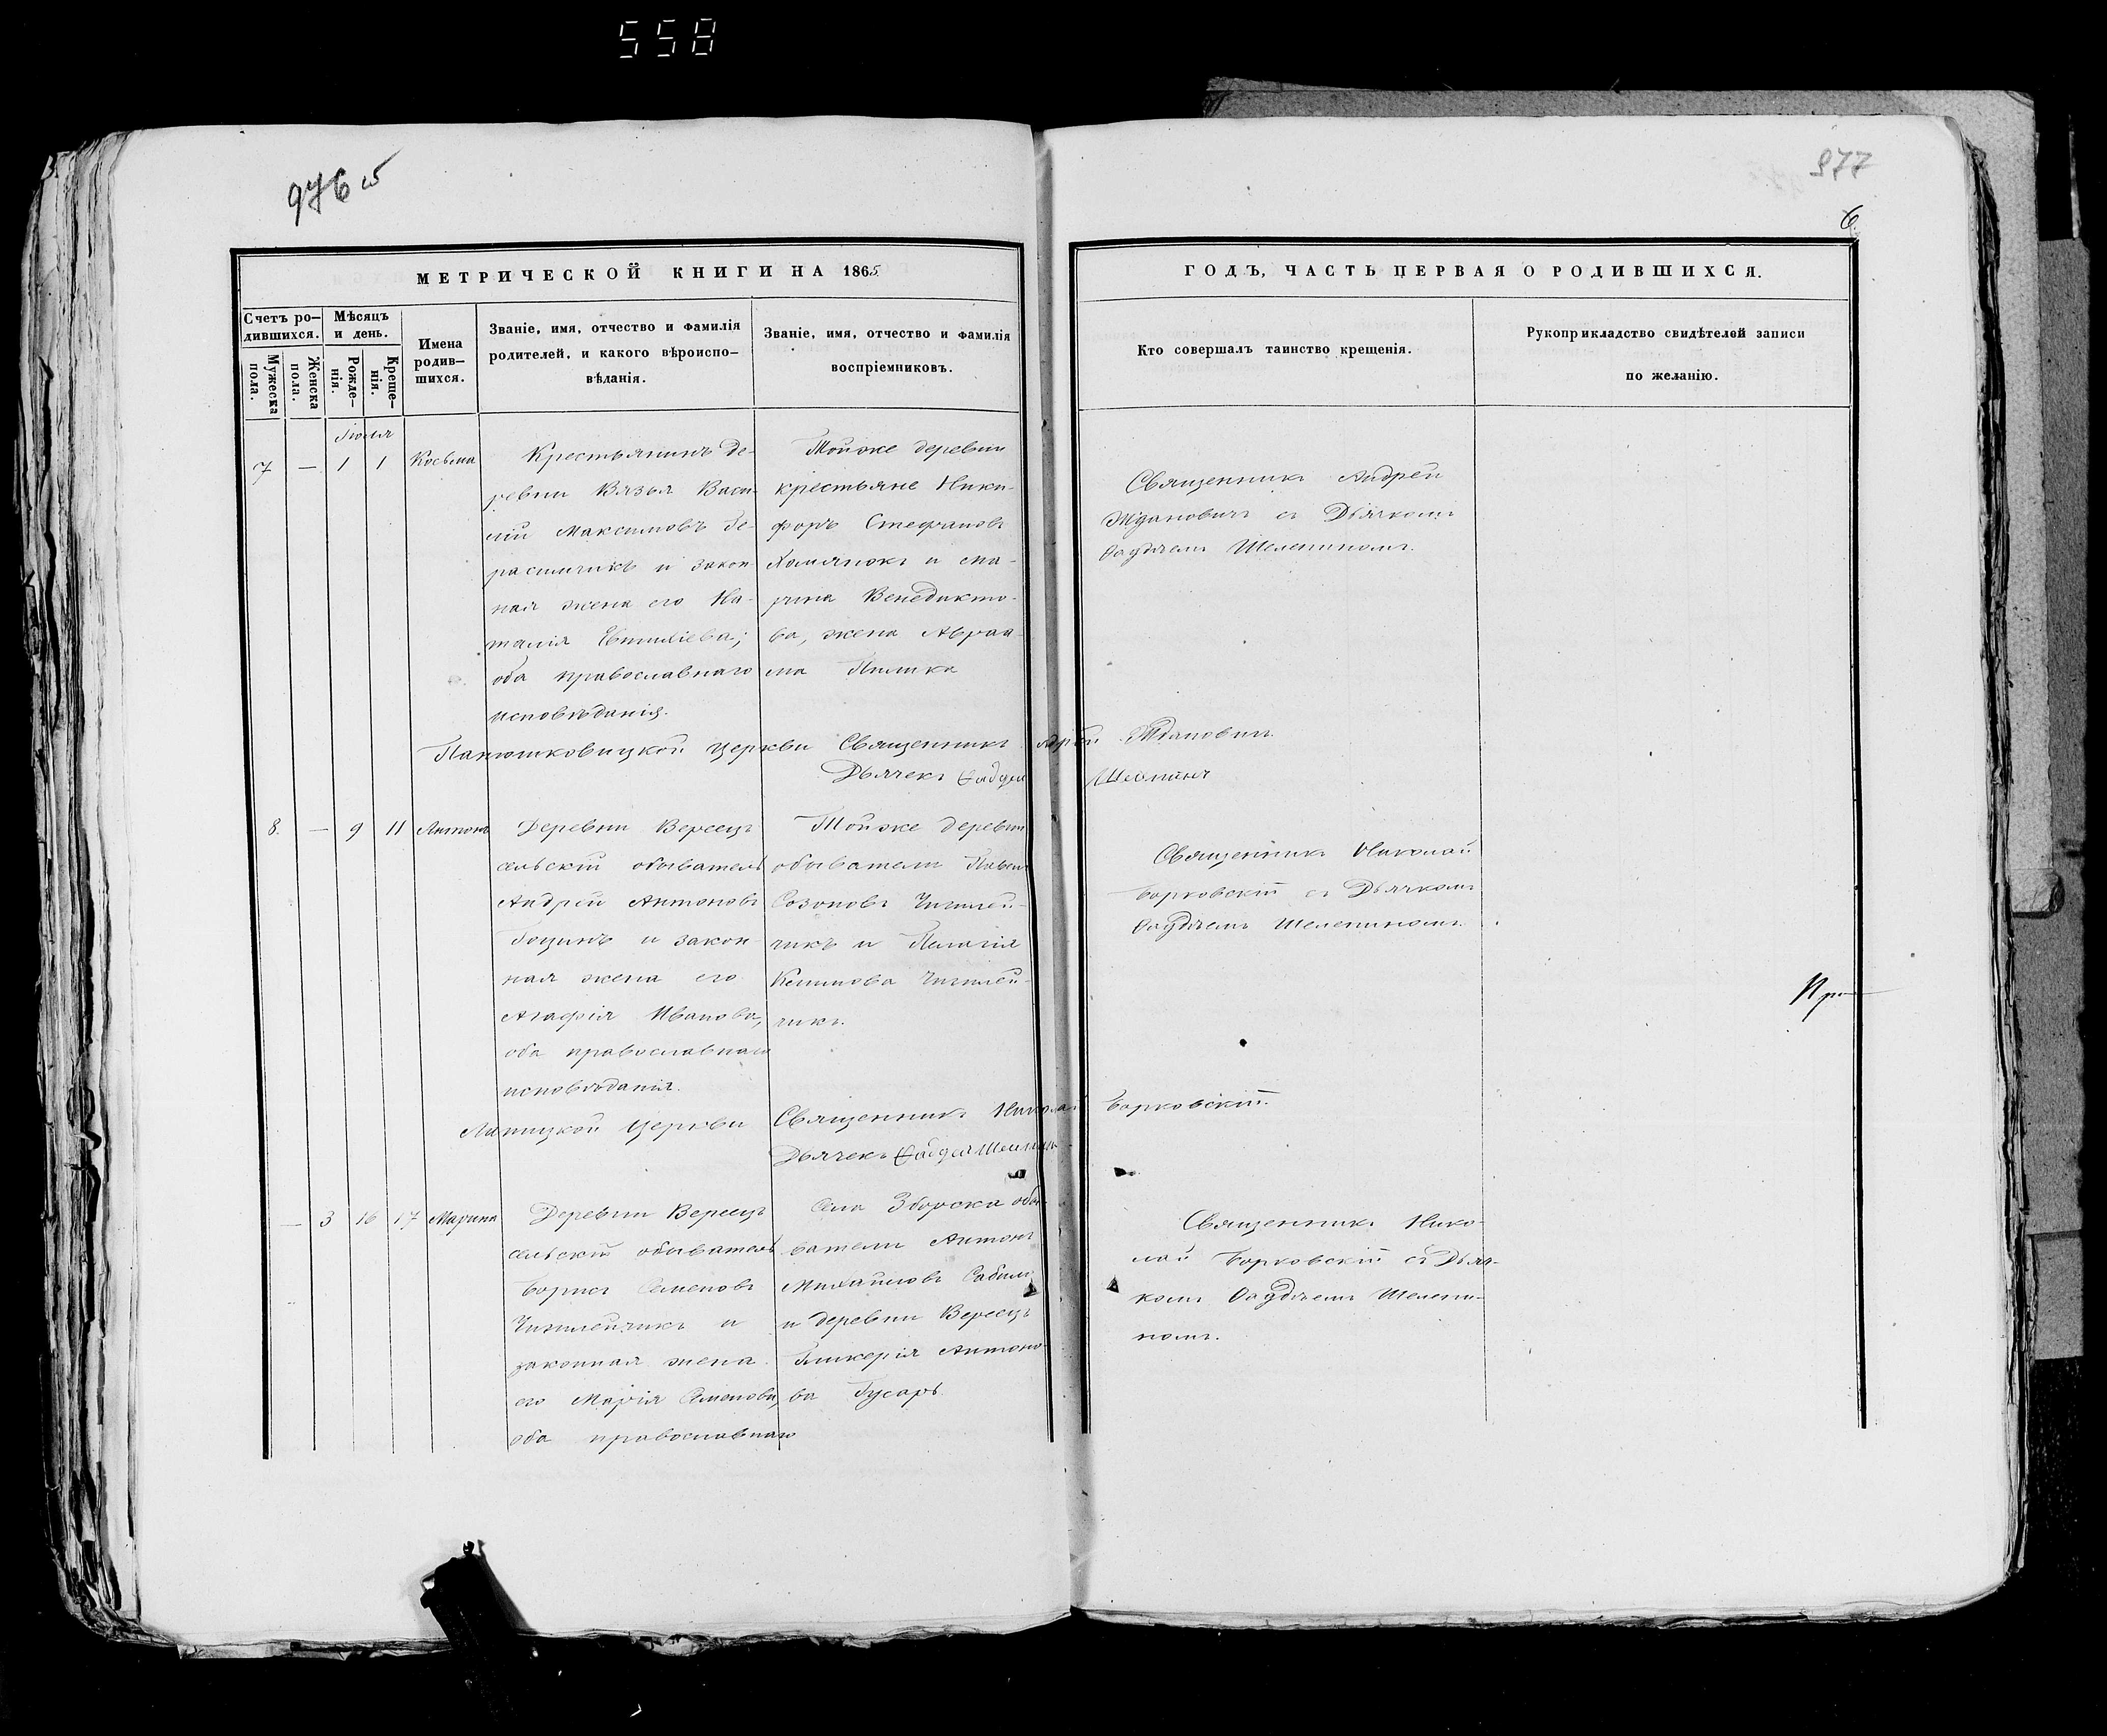 558
976 об
977
6
МЕТРИЧЕСКОЙ КНИГИ НА 1865
ГОДЪ, ЧАСТЬ ПЕРВАЯ О РОДИВШИХСЯ.
Счетъ ро-
дившихся.
Мужеска
пола.
Женска
пола.
Мѣсяцъ
и день.
Рожде-
нія.
Креще-
нія.
Имена
родив-
шихся.
Званіе, имя, отчество и фамилія
родителей, и какого вѣроиспо-
вѣданія.
Званіе, имя, отчество и фамилія
воспріемниковъ.
Кто совершалъ таинство крещенія.
Рукоприкладство свидѣтелей записи
по желанію.
7 — 1 1 Косьма
Крестьянинъ де-
ревни Вязья Васи-
лій Максимовъ Ге-
расимчикъ и закон-
ная жена его На-
талія
оба православнаго
исповѣданія.
Тойже деревни
крестьяне Ники-
форъ Стефановъ
и Ма-
рина Венедикто-
ва, жена Авраа-
ма
Священникъ Андрей
Ждановичъ съ Дьячкомъ
Ѳаддѣемъ Шелепиномъ.
церкви Священникъ Ждановичъ
Дьячекъ Ѳаддей
8. — 9 11 Антонъ
Деревни Вересцъ
сельскій обыватель
Андрей Антоновъ
и закон-
ная жена его
Агафія Иванова,
оба православнаго
исповѣданія.
Тойже деревни
обыватели Павелъ
Созоновъ
чикъ и Пелагія
чикъ.
Священникъ Николай
Борковскій съ Дьячкомъ
Ѳаддѣемъ Шелепиномъ.
При
церкви Священникъ Николай Борковскій.
Дьячекъ Ѳаддей
— 3 16 17 Марина
Деревни Вересцъ
сельскій обыватель
Борисъ Семеновъ
и
законная жена
его Марія Семенова,
оба православнаго
Села Зборска обы-
ватели Антонъ
Михайловъ
и деревни Вересцъ
Гликерія Антоно-
ва Гусаръ.
Священникъ Нико-
лай Борковскій съ Дьяч-
комъ Ѳаддѣемъ Шелепи-
номъ.